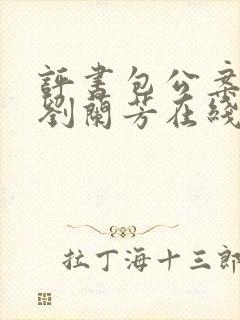 評書包公案
劉蘭芳在綫
拉丁海十三郎